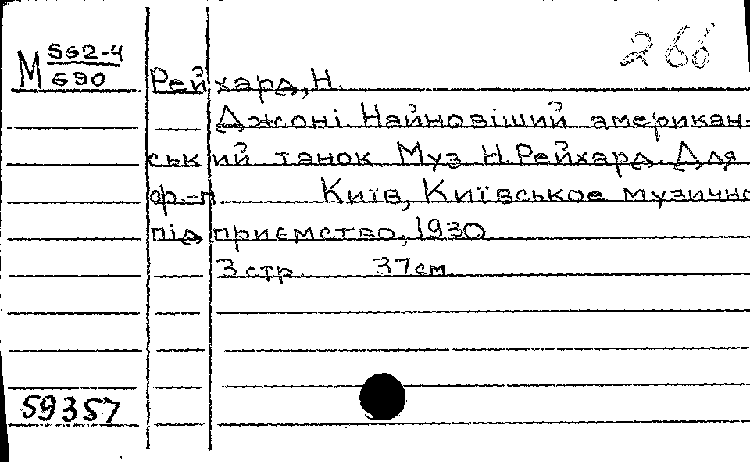 266
М 562-4
690
Рейхард, Н.
Джоні. Найновіший американ-
ський танок. Муз. Н. Рейхард. Для
ф.-п. Київ, Київське музичне
підприємство, 1930
3 стр. 37 см.
59357